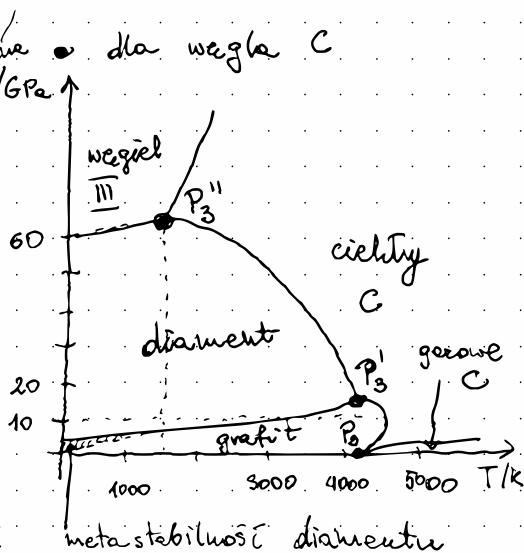 dla węgla C
/GPa
węgiel
III
P₃''
60
ciekły
C
diament
P₃'
gazowe
C
20
10
grafit
P₃
1000
3000
4000
5000
T/K
metastabilność diamentu